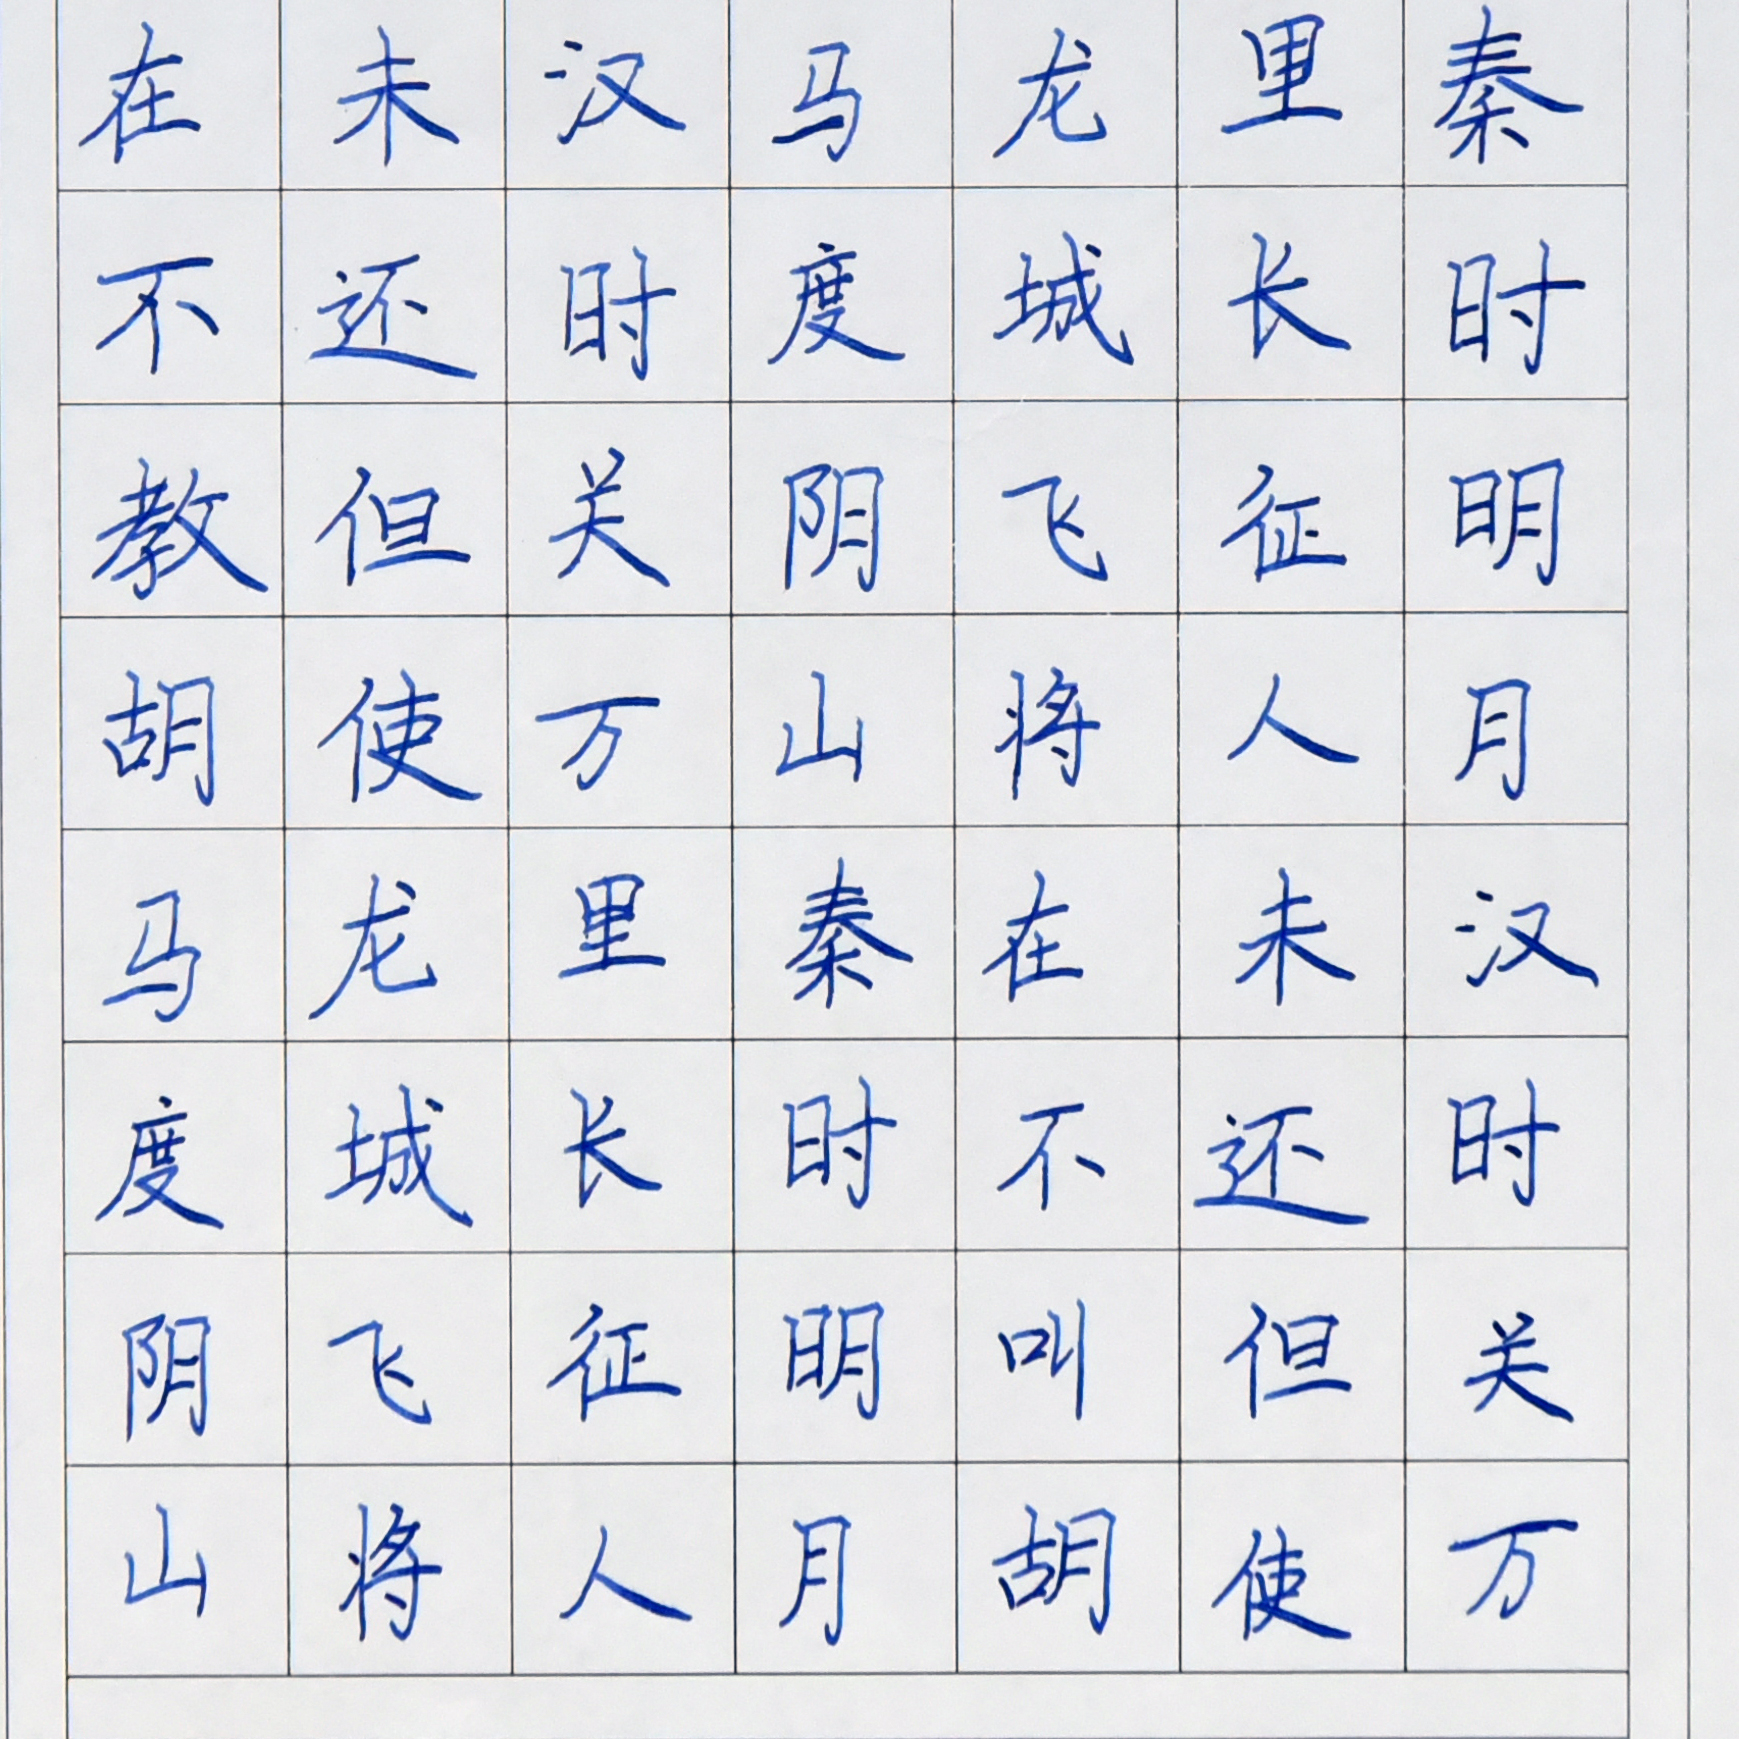 秦时明月汉时关万
里长征人未还但使
龙城飞将在不叫胡
马度阴山秦时明月
汉时关万里长征人
未还但使龙城飞将
在不教胡马度阴山